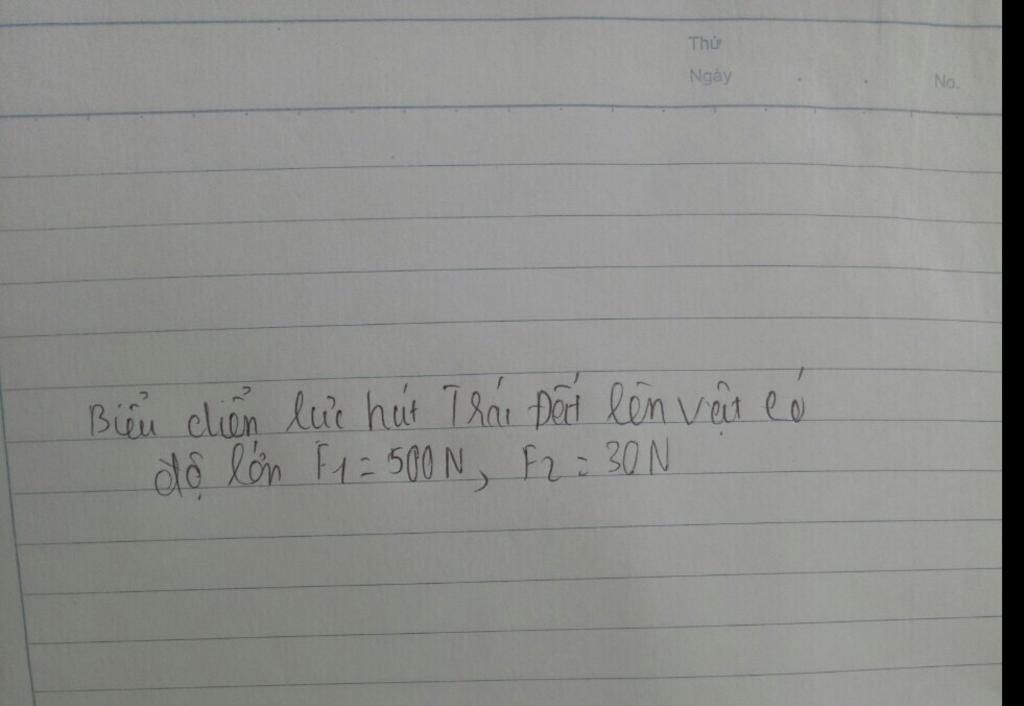 Thứ
Ngày
No.
Biểu diễn lực hút Trái Đất lên vật có
độ lớn F1 = 500N, F2 = 30N